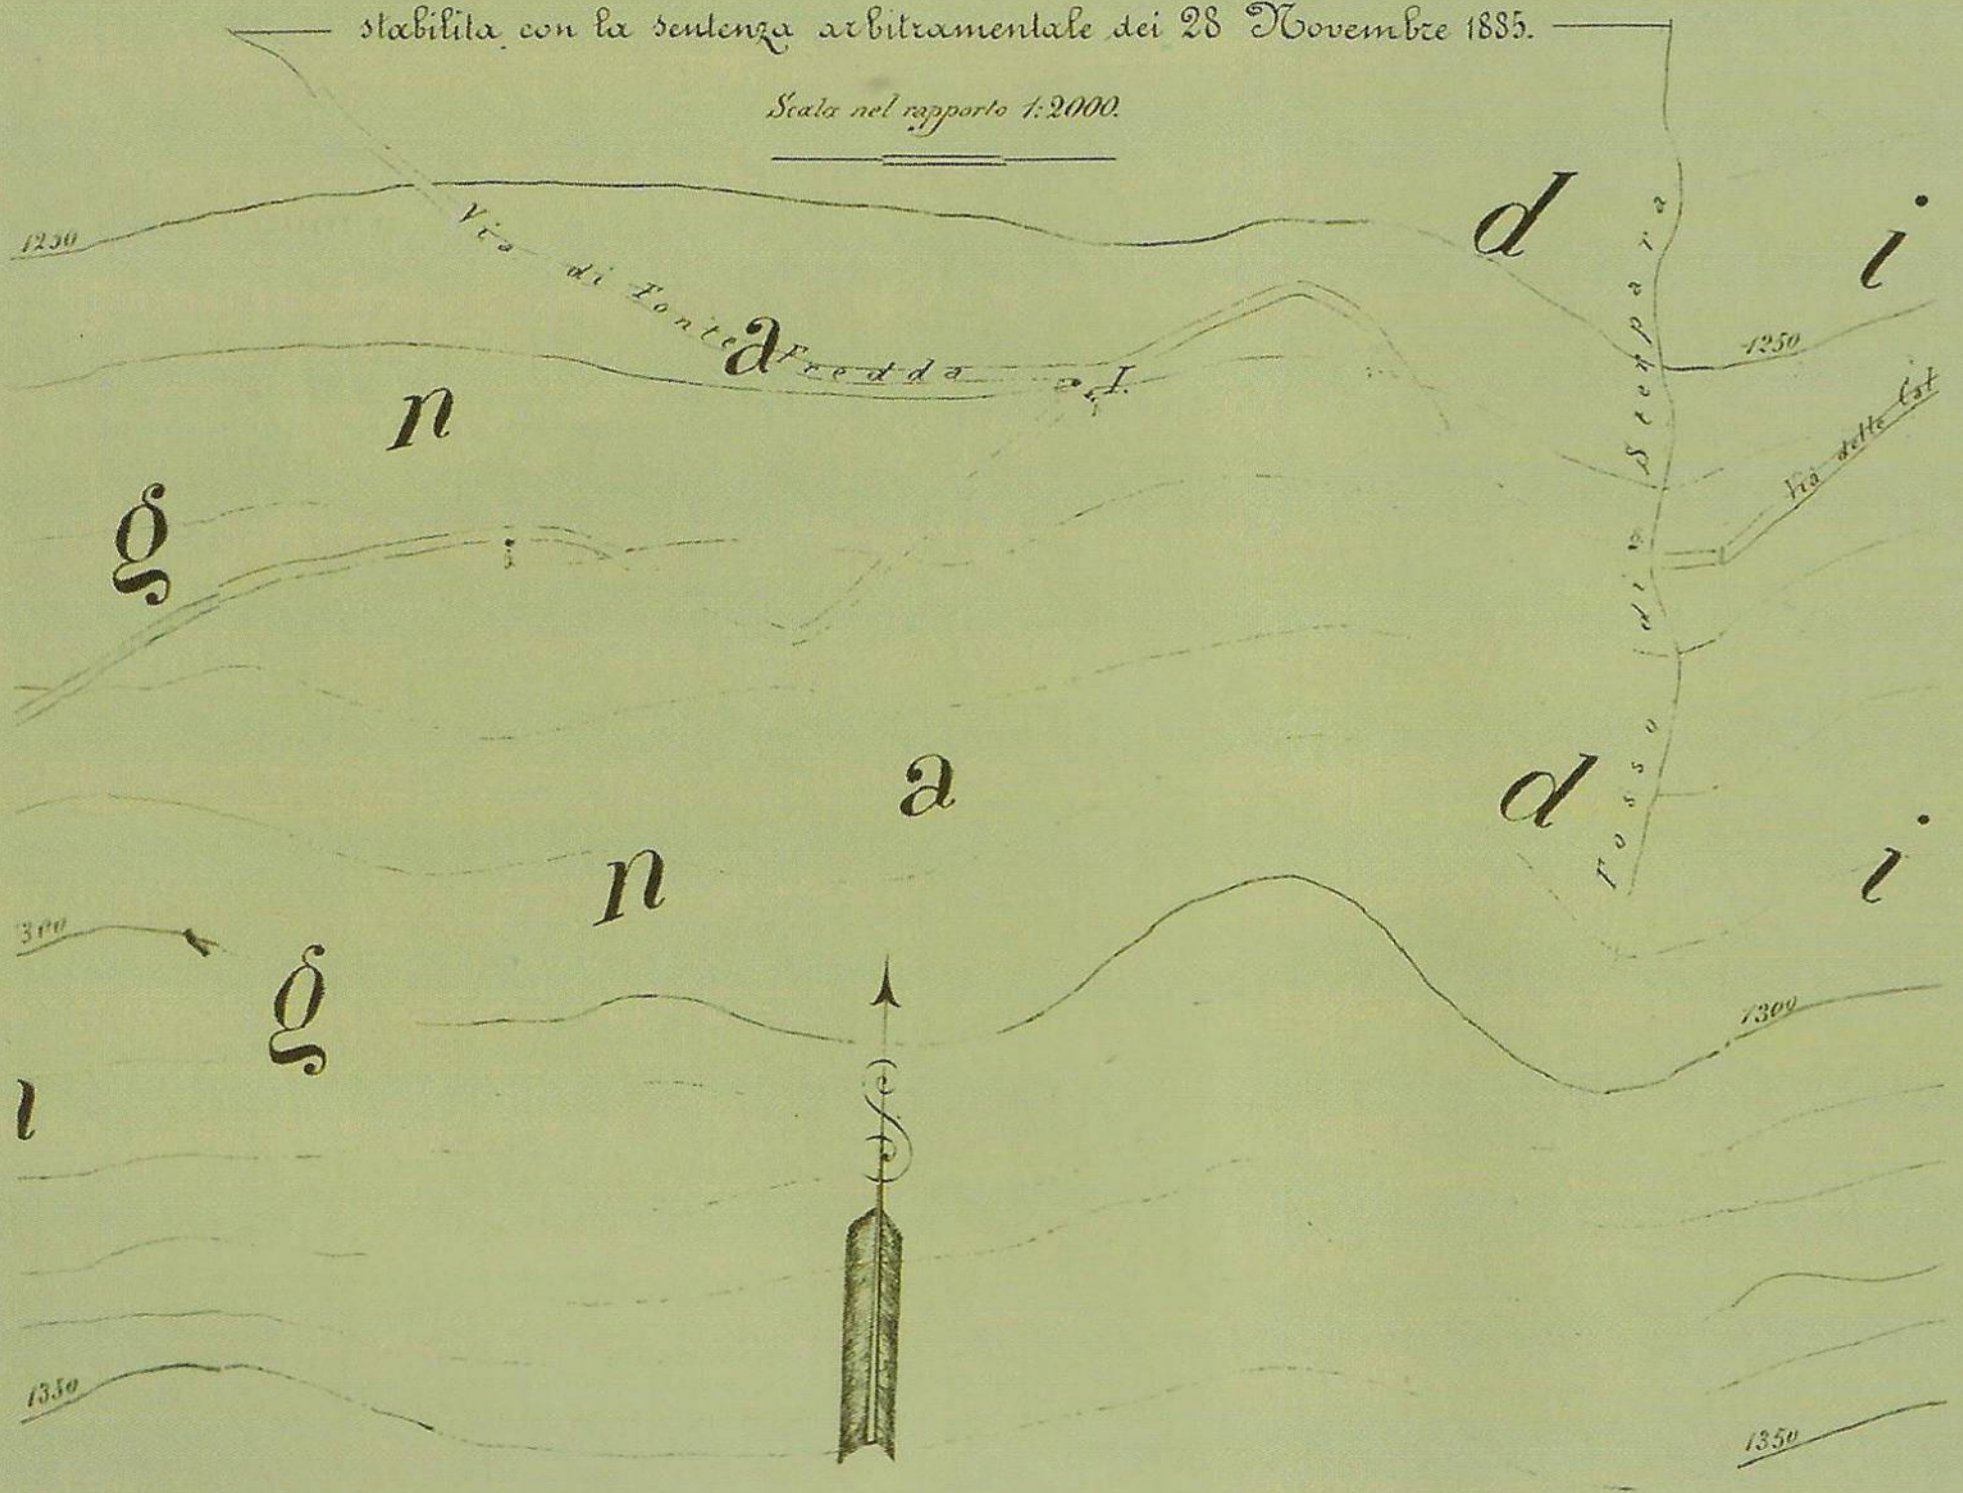 stabilita con la sentenza arbitramentale dei 28 Novembre 1885.
Scala nel rapporto 1:2000.
1250
Via di Fonte Fredda
I.
1250
Via delle Cat
Fosso di Stenpara
g n a d i
i
g n a d i
300
1300
1350
1350